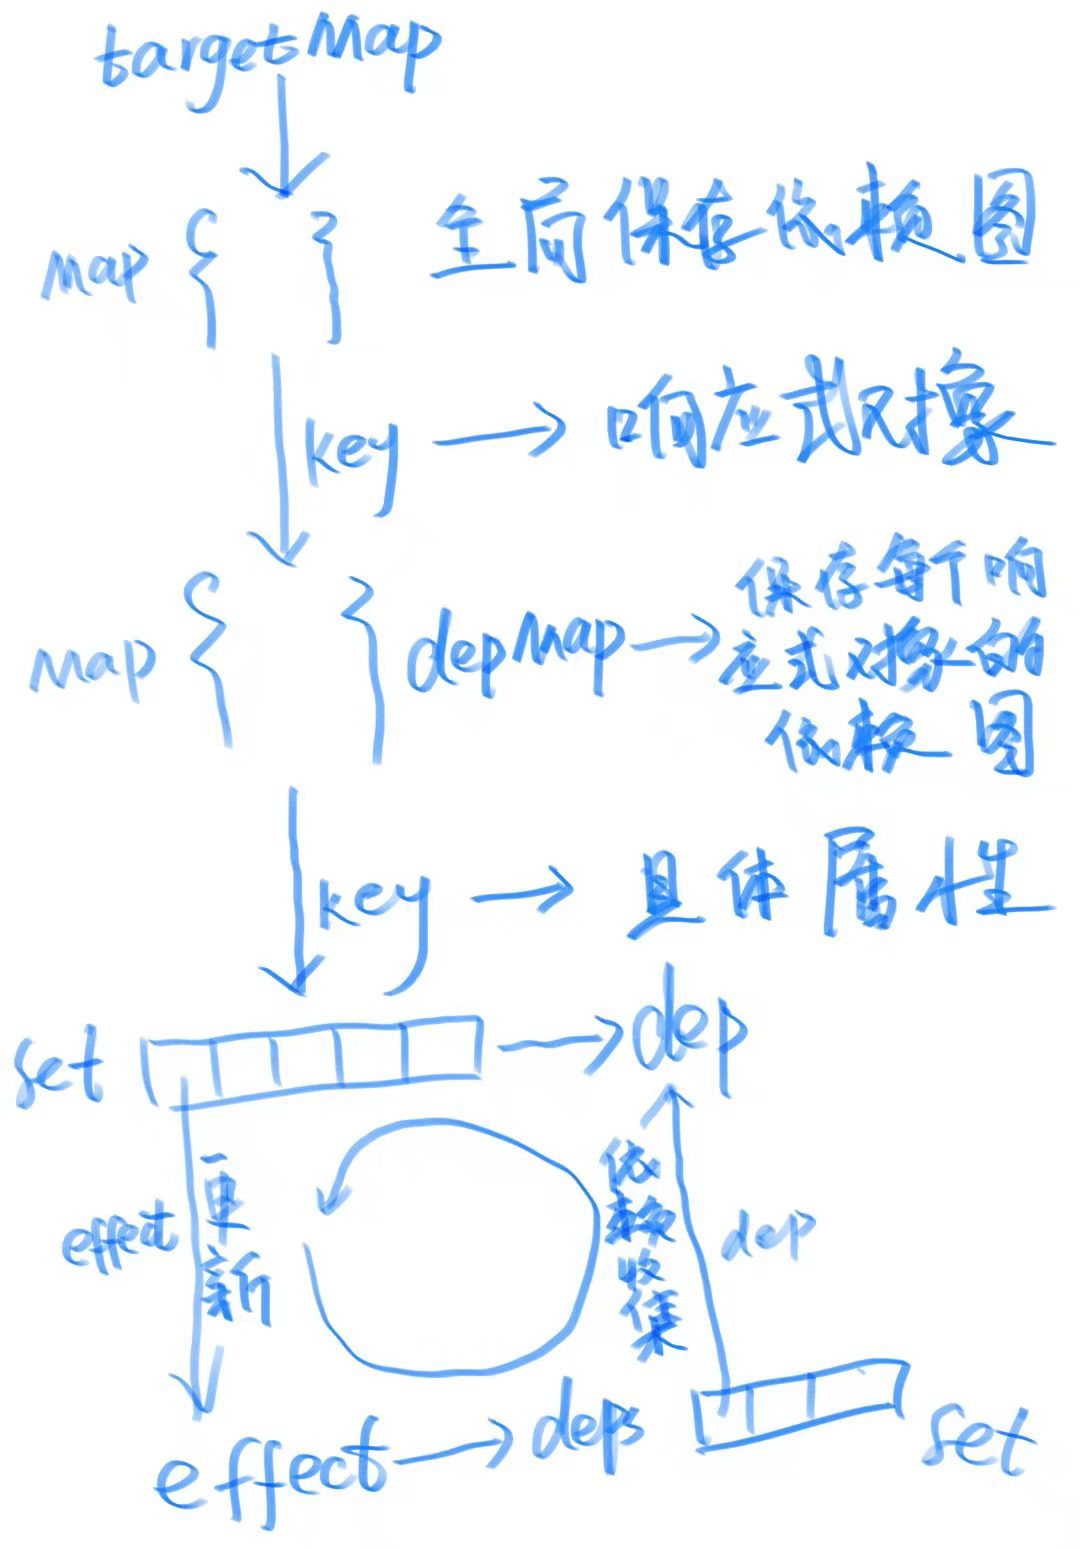 targetMap
map { } 全局保存依赖图
key → 响应式对象
map { } depMap → 保存每个响
应式对象的
依赖图
key → 具体属性
set → dep
effect 更新 依赖收集 dep
effect → deps set